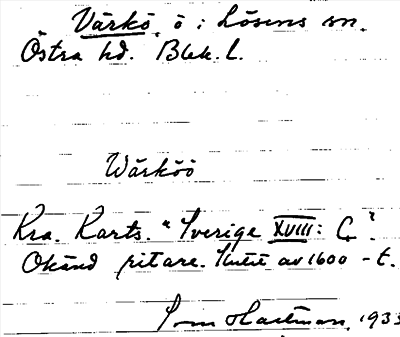 Värkö, ö i Lösens sn.
Östra hd. Blek. l.
Wärköö
Kra. Karts. "Sverige XVIII: C".
Okänd ritare. Slutet av 1600-t.
Hartman, 1933